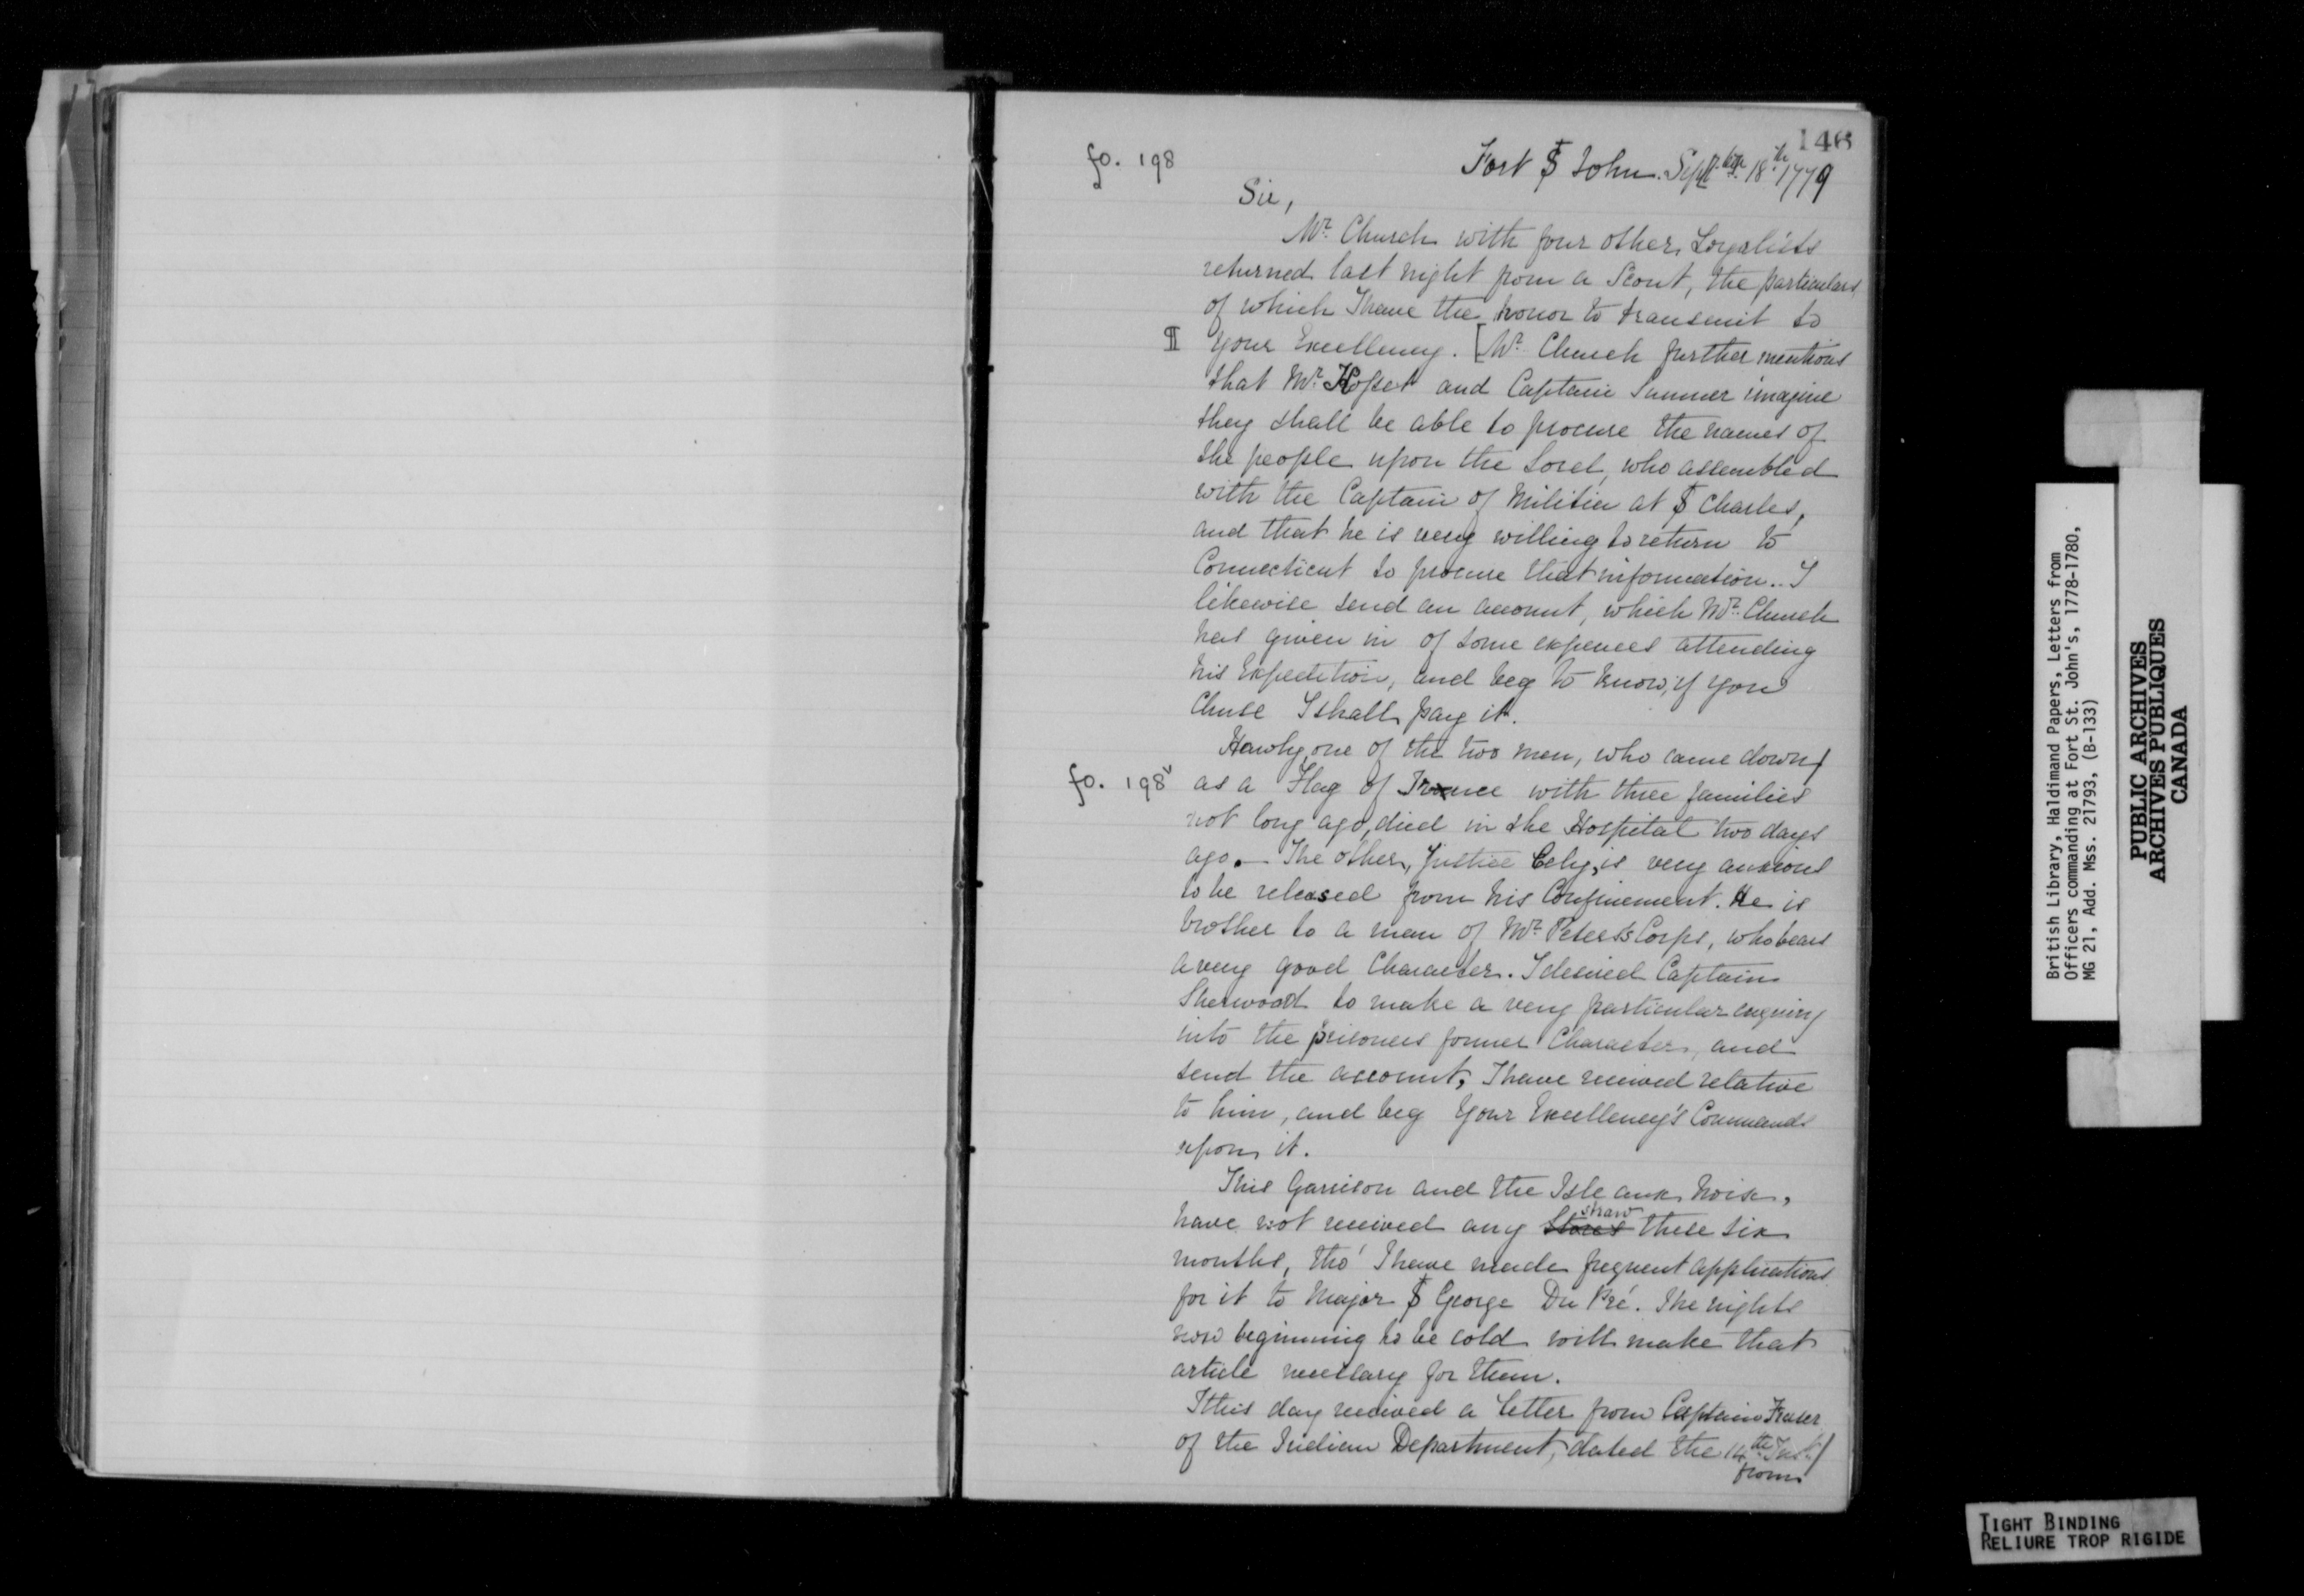 146
fo. 198
Fort St John. Septbr. 18th 1779
Sir,
Mr. Church with four other Loyalists
returned last night from a Scout, the particulars
of which I have the honor to transmit to
¶ Your Excellency. [Mr. Church further mentions
that Mr. and Captain Sumner imagine
they shall be able to procure the names of
the people upon the Sorel, who assembled
with the Captain of Militia at St Charles,
and that he is very willing to return to
Connecticut to procure that information.. I
likewise send an account, which Mr. Church
has given in of some expences attending
his Expedition, and beg to know, if you
Chuse I shall pay it.
Hawly, one of the two men, who came down
fo. 198v as a Flag of Truce with three families
not long ago, died in the Hospital two days
ago. — The other, Justice is very anxious
to be released from his Confinement. He is
brother to a man of Mr. Peters's Corps, who bears
a very good Character. I desired Captain
Sherwood to make a very particular enquiry
into the prisoners former Character, and
send the account, I have received relative
to him, and beg Your Excellency's Commands
upon it.
This Garrison and the Isle aux Noix,
have not received any Stores straw these six
months, tho' I have made frequent applications
for it to Major St George Du Pré. The nights
now beginning to be cold will make that
article necessary for them.
I this day received a letter from Captain Fraser
of the Indian Department, dated the 14th Inst.
from
British Library, Haldimand Papers, Letters from
Officers commanding at Fort St. John's, 1778-1780,
MG 21, Add. Mss. 21793, (B-133)
PUBLIC ARCHIVES
ARCHIVES PUBLIQUES
CANADA
TIGHT BINDING
RELIURE TROP RIGIDE